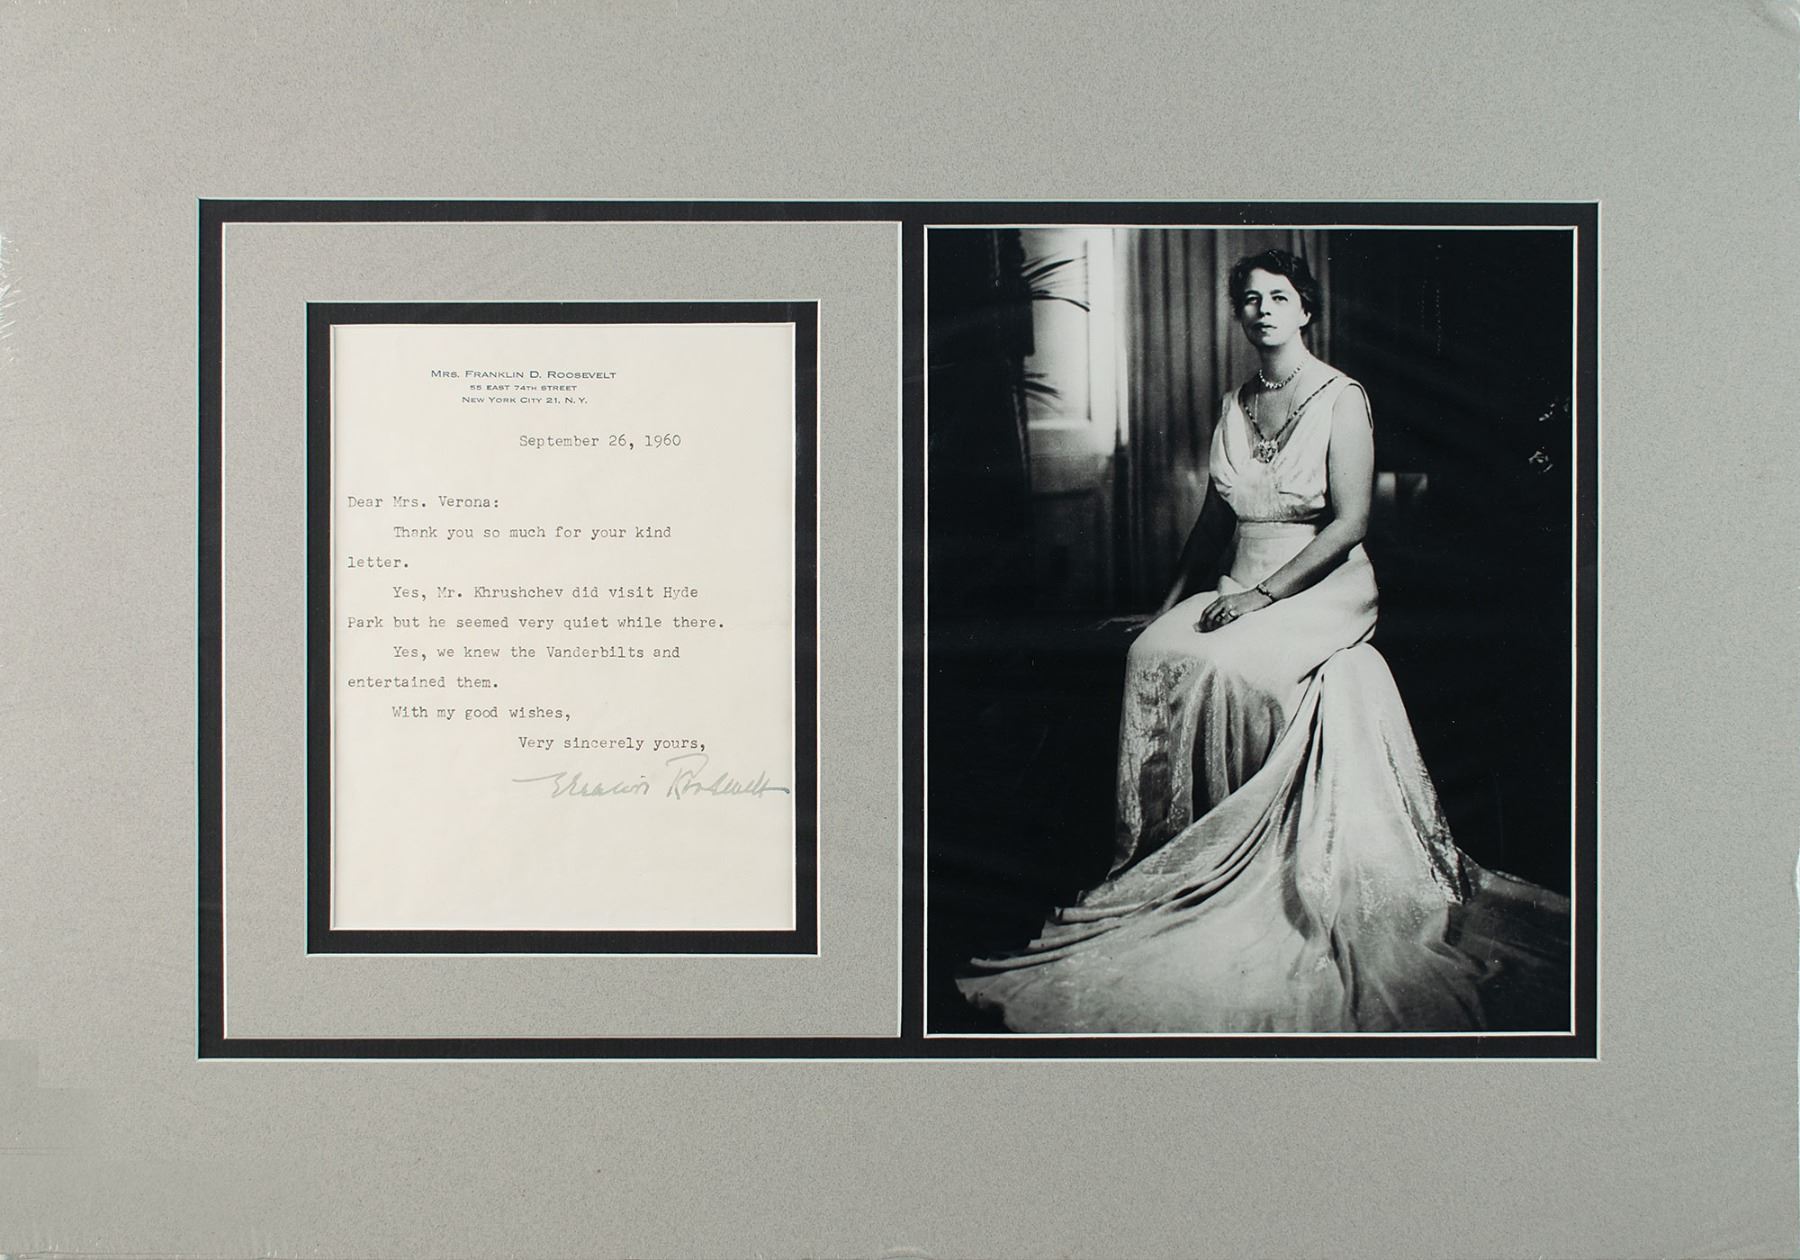 MRS. FRANKLIN D. ROOSEVELT
55 EAST 74TH STREET
NEW YORK CITY 21, N. Y.
September 26, 1960
Dear Mrs. Verona:
Thank you so much for your kind
letter.
Yes, Mr. Khrushchev did visit Hyde
Park but he seemed very quiet while there.
Yes, we knew the Vanderbilts and
entertained them.
With my good wishes,
Very sincerely yours,
Eleanor Roosevelt